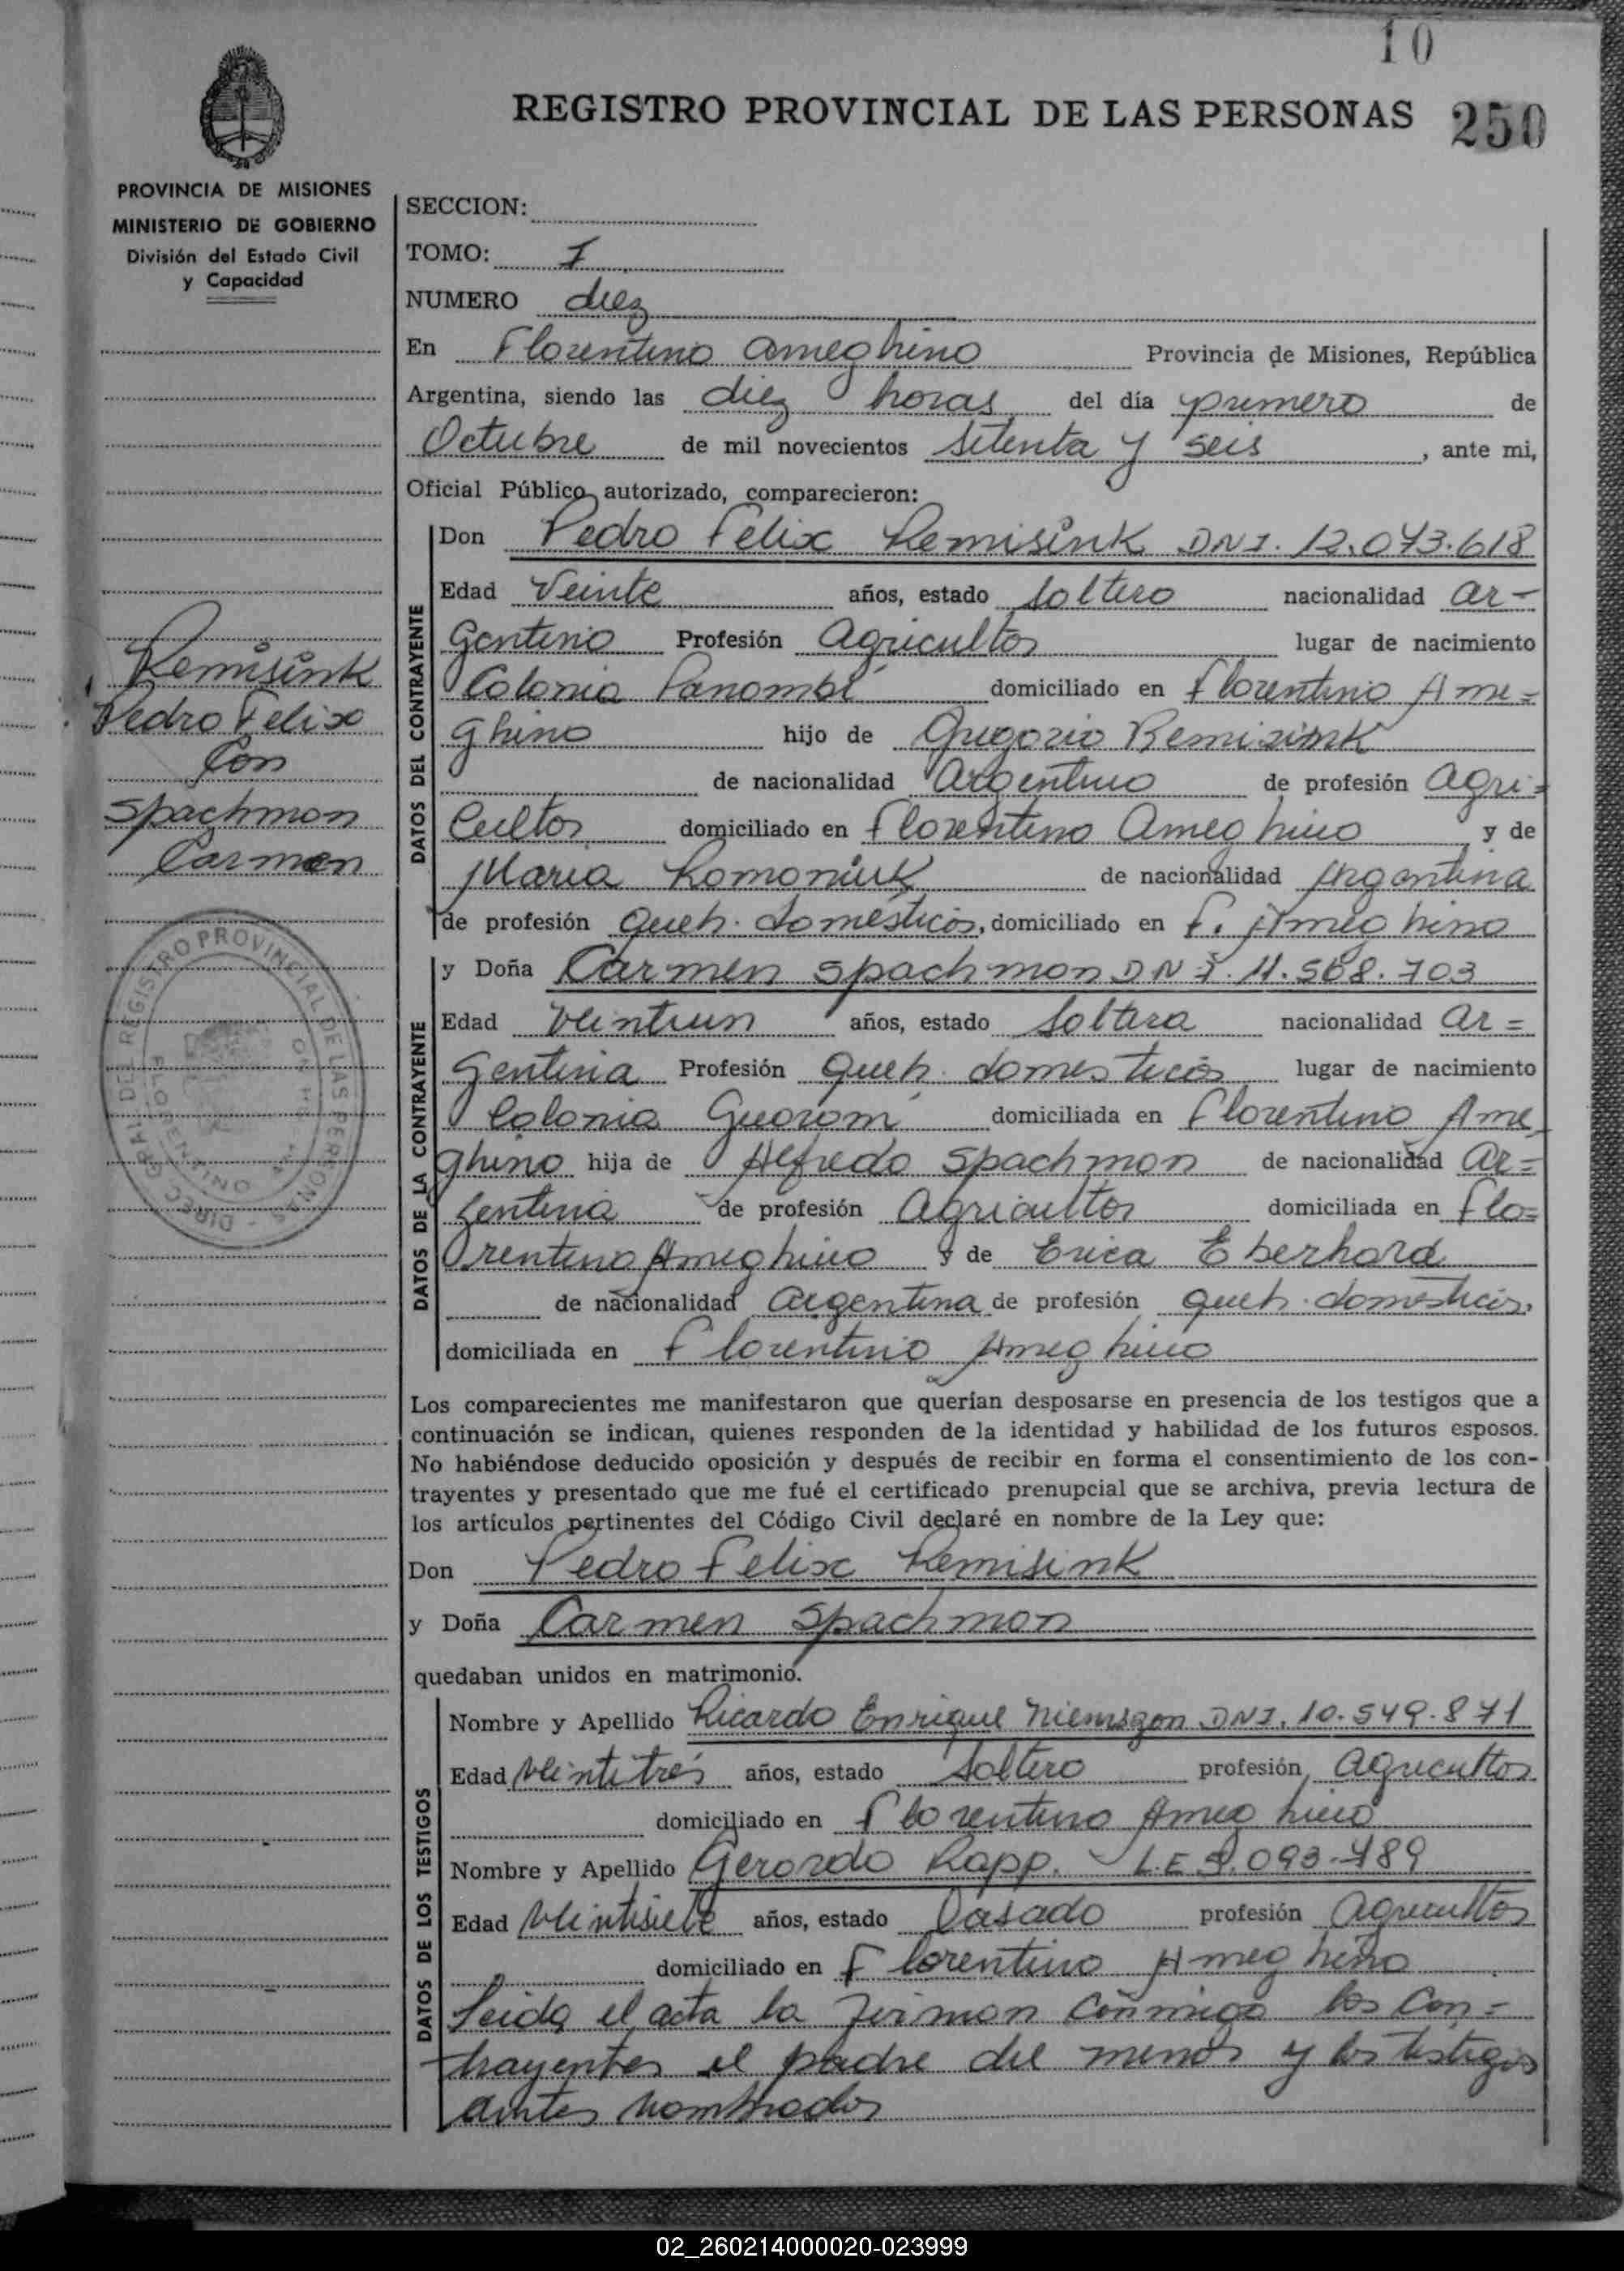 10
REGISTRO PROVINCIAL DE LAS PERSONAS 250
PROVINCIA DE MISIONES
MINISTERIO DE GOBIERNO
División del Estado Civil
y Capacidad
SECCION:
TOMO: I
NUMERO diez
En Florentino Ameghino Provincia de Misiones, República
Argentina, siendo las diez horas del día primero de
Octubre de mil novecientos setenta y seis, ante mi,
Oficial Público autorizado, comparecieron:
DATOS DEL CONTRAYENTE
Don Pedro Felix Remisink DNI. 12.073.618
Edad Veinte años, estado soltero nacionalidad ar-
gentino Profesión Agricultor lugar de nacimiento
Colonia Panambí domiciliado en Florentino Ame=
ghino hijo de Gregorio Remisink
de nacionalidad Argentino de profesión Agri=
cultor domiciliado en Florentino Ameghino y de
Maria Romaniuk de nacionalidad Argentina
de profesión queh. domésticos, domiciliado en F. Ameghino
Remisink
Pedro Felix
Con
Spachmon
Carmen
DIREC. GRAL. DEL REGISTRO PROVINCIAL DE LAS PERSONAS
FLORENTINO
DATOS DE LA CONTRAYENTE
y Doña Carmen Spachmon DNI. 11.568.703
Edad Veintiun años, estado Soltera nacionalidad Ar=
gentina Profesión queh. domesticos lugar de nacimiento
Colonia Guaraní domiciliada en Florentino Ame
ghino hija de Alfredo Spachmon de nacionalidad Ar=
gentina de profesión Agricultor domiciliada en Flo=
rentino Ameghino y de Erica Eberhard
de nacionalidad Argentina de profesión queh. domesticos,
domiciliada en Florentino Ameghino
Los comparecientes me manifestaron que querían desposarse en presencia de los testigos que a
continuación se indican, quienes responden de la identidad y habilidad de los futuros esposos.
No habiéndose deducido oposición y después de recibir en forma el consentimiento de los con-
trayentes y presentado que me fué el certificado prenupcial que se archiva, previa lectura de
los artículos pertinentes del Código Civil declaré en nombre de la Ley que:
Don Pedro Felix Remisink
y Doña Carmen Spachmon
quedaban unidos en matrimonio.
DATOS DE LOS TESTIGOS
Nombre y Apellido Ricardo Enrique DNI. 10.549.871
Edad Veintitrés años, estado Soltero profesión, Agricultor
domiciliado en Florentino Ameghino
Nombre y Apellido Gerardo Rapp. L.E 8.093.789
Edad Veintisiete años, estado Casado profesión Agricultor
domiciliado en Florentino Ameghino
Leida el acta la firman conmigo los Con=
trayentes el padre del menor y los testigos
antes nombrados
02_260214000020-023999